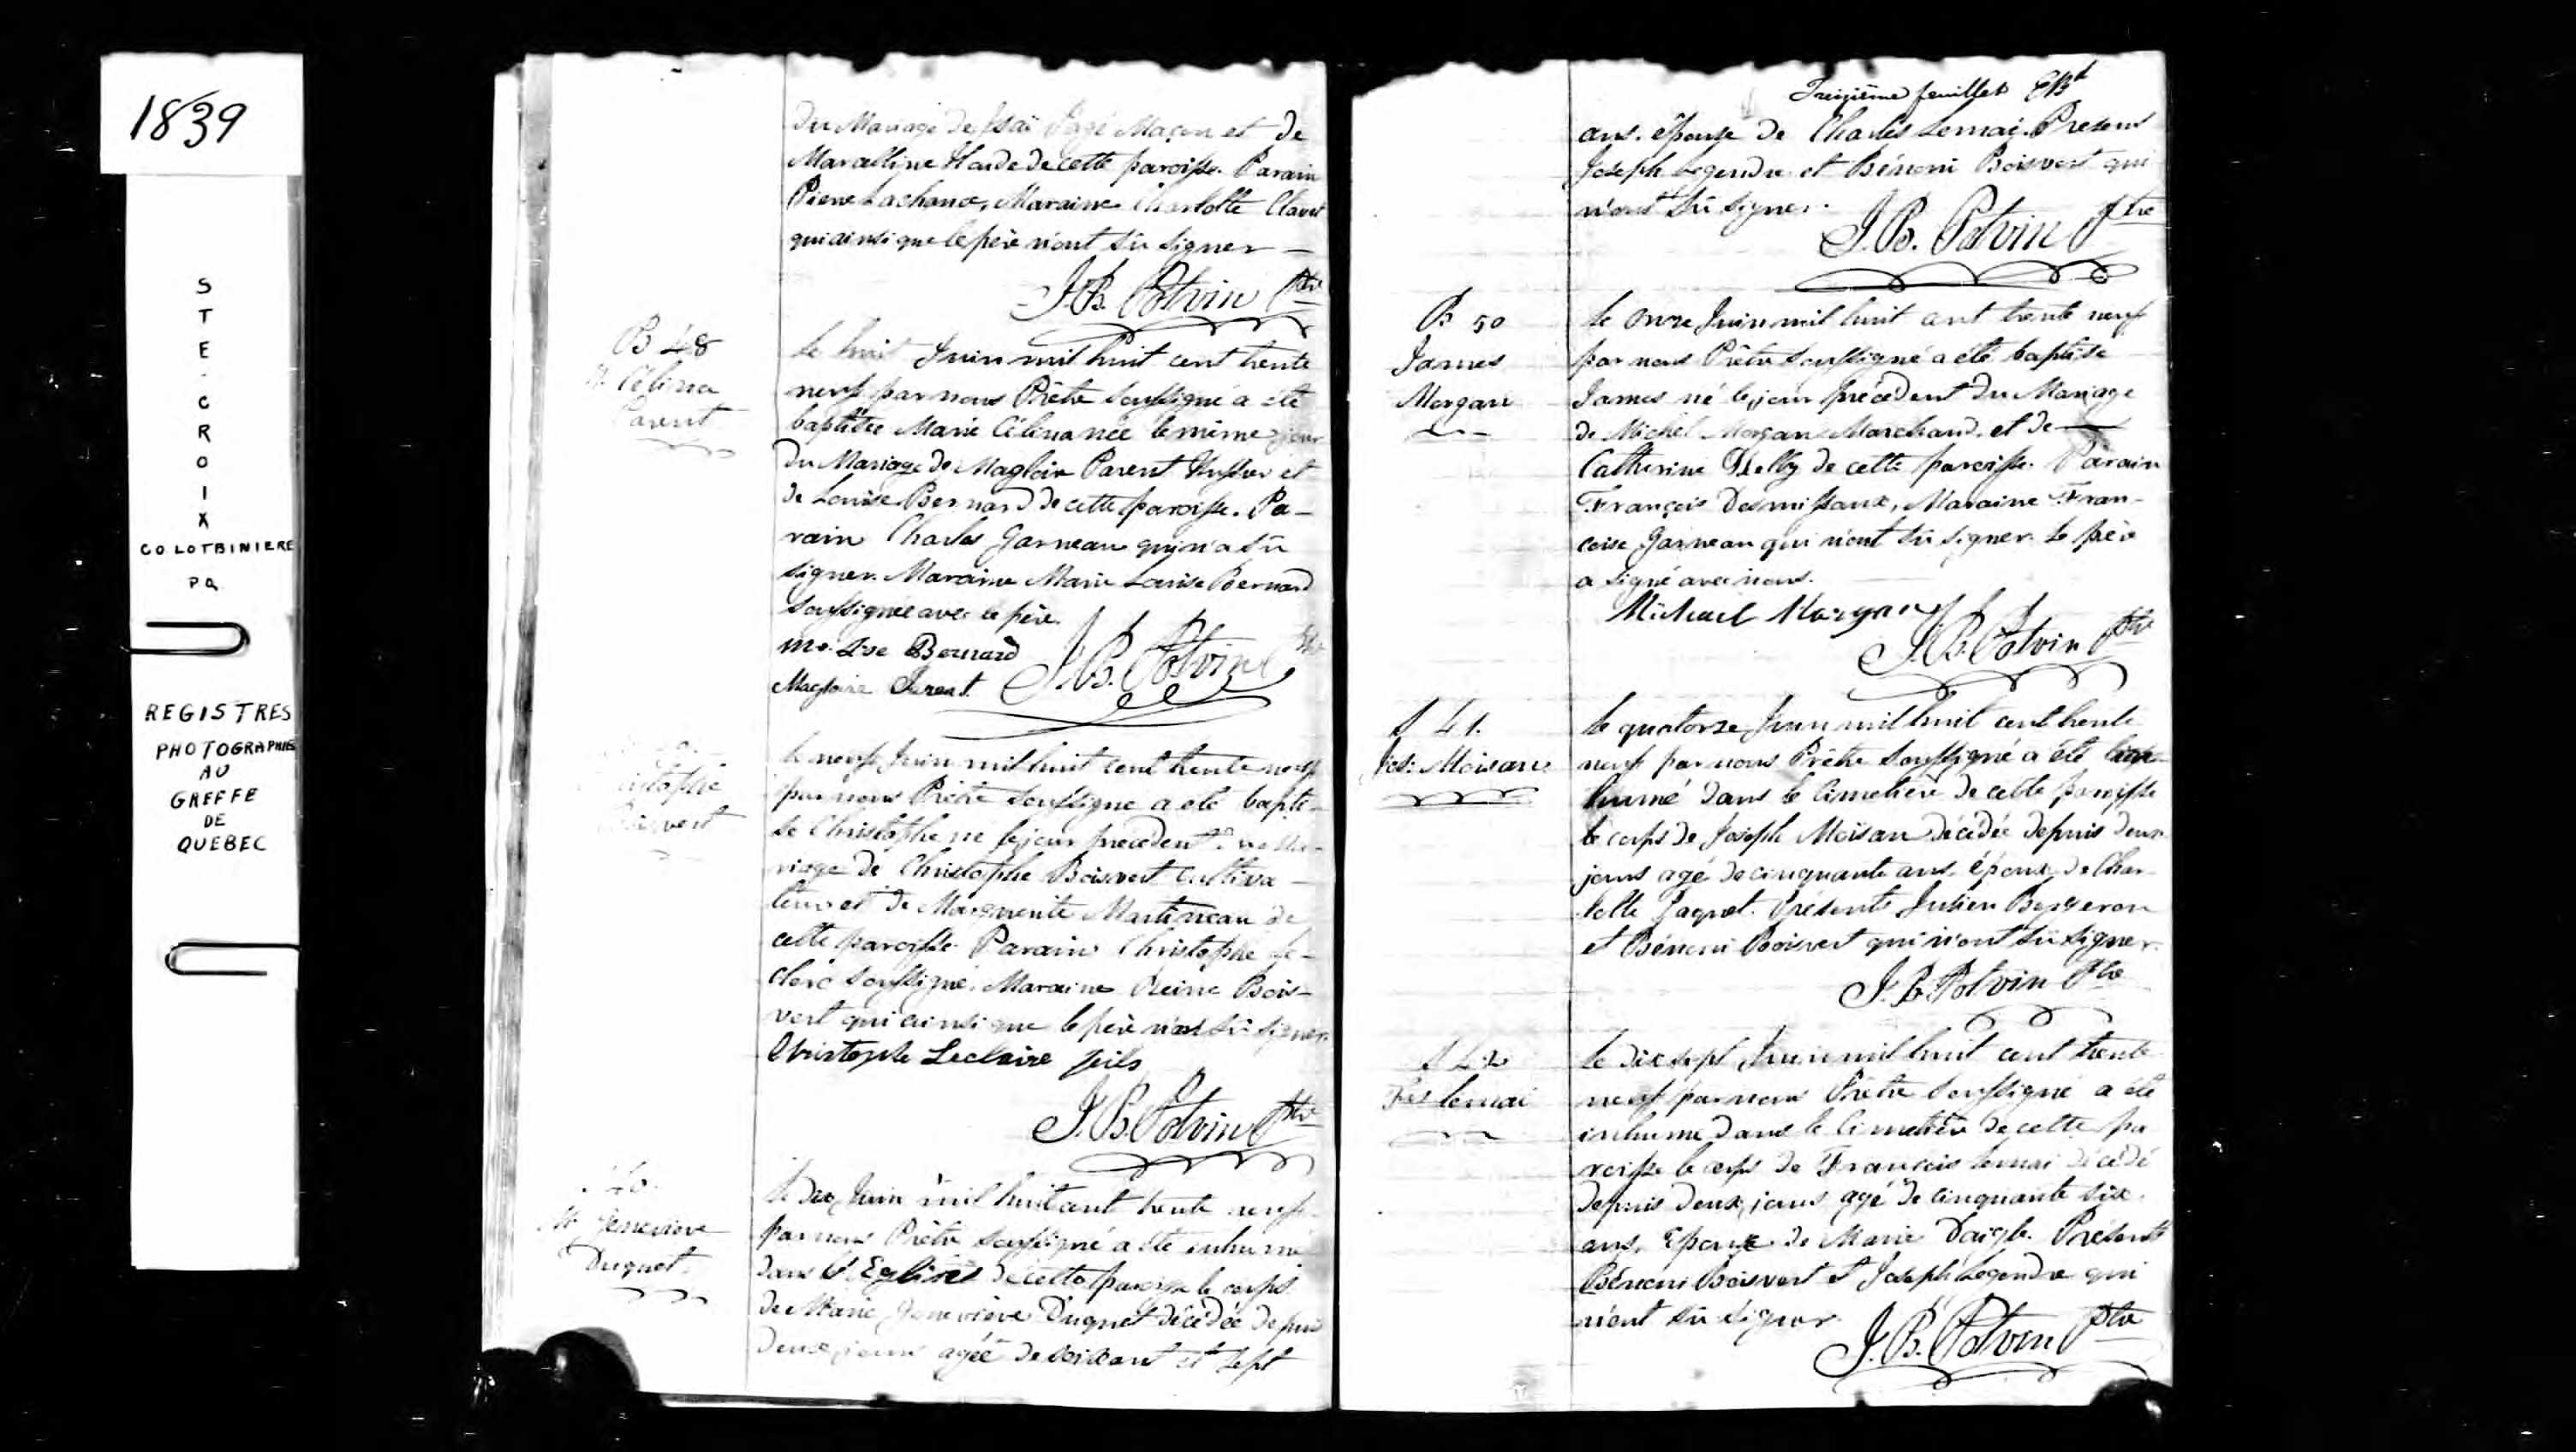 1839
STE-CROIX
CO LOTBINIERE
PQ
REGISTRES
PHOTOGRAPHIES
AU
GREFFE
DE
QUEBEC
du Mariage de Isaï Pagé Maçon et de
Marcelline Houde de cette paroisse. Parain
Pierre Lachance, Maraine Charlotte Clavet
qui ainsi que le père n'ont sû signer —
J.B. Potvin Ptre
B 48
M. Célina
Parent
Le huit Juin mil huit cent trente
neuf par nous Prêtre soussigné a été
baptisée Marie Célina née le même jour
du Mariage de Magloire Parent Huissier et
de Louise Bernard de cette paroisse. Pa-
rain Charles Garneau qui n'a sû
signer. Maraine Marie Louise Bernard
soussignée avec le père.
Me. Lse Bernard
Magloire Parent
J.B. Potvin Ptre
istophe
Boisvert
le neuf Juin mil huit cent trente neuf
par nous Prêtre soussigné a été bapti-
sé Christophe né le jour précédent du Ma-
riage de Christophe Boisvert cultiva-
teur et de Marguerite Martineau de
cette paroisse Parain Christophe Le-
clerc soussigné, Maraine Reine Bois-
vert qui ainsi que le père n'ont sû signer.
Christophe Leclaire fils
J.B. Potvin Ptre
40
M. Genevieve
Duquet
le dix Juin mil huit cent trente neuf
par nous Prêtre soussigné a été inhumé
dans l'Eglise de cette paroisse le corps
de Marie Geneviève Duquet décédée depuis
deux jours agée de soixant et sept
Treizième feuillet
ans. épouse de Charles Lemai. Présens
Joseph Legendre et Bénoni Boisvert qui
n'ont sû signer.
J.B. Potvin Ptre
B 50
James
Morgan
le onze Juin mil huit cent trente neuf
par nous Prêtre soussigné a été baptisé
James né le jour précédent du Mariage
de Michel Morgan Marchand et de —
Catherine Kelly de cette paroisse. Parain
François Desruisseaux, Maraine Fran-
coise Garneau qui n'ont sû signer. Le père
a signé avec nous.
Michael Morgan
J.B. Potvin Ptre
S 41.
Jos: Moisan
le quatorze Juin mil huit cent trente
neuf par nous Prêtre soussigné a été in
humé dans le Cimetière de cette paroisse
le corps de Joseph Moisan décédée depuis deux
jours agé de cinquante ans. époux de Char
lotte Paquet. Présents Julien Bergeron
et Bénoni Boisvert qui n'ont sû signer.
J.B. Potvin Ptre
S 42
Frs Lemai
le dix sept Juin mil huit cent trente
neuf par nous Prêtre soussigné a été
inhumé dans le Cimetière de cette pa
roisse le corps de François Lemai décédé
depuis deux jours agé de cinquante six
ans. Epoux de Marie Daigle. Présents
Bénoni Boisvert et Joseph Legendre qui
n'ont sû signer.
J.B. Potvin Ptre